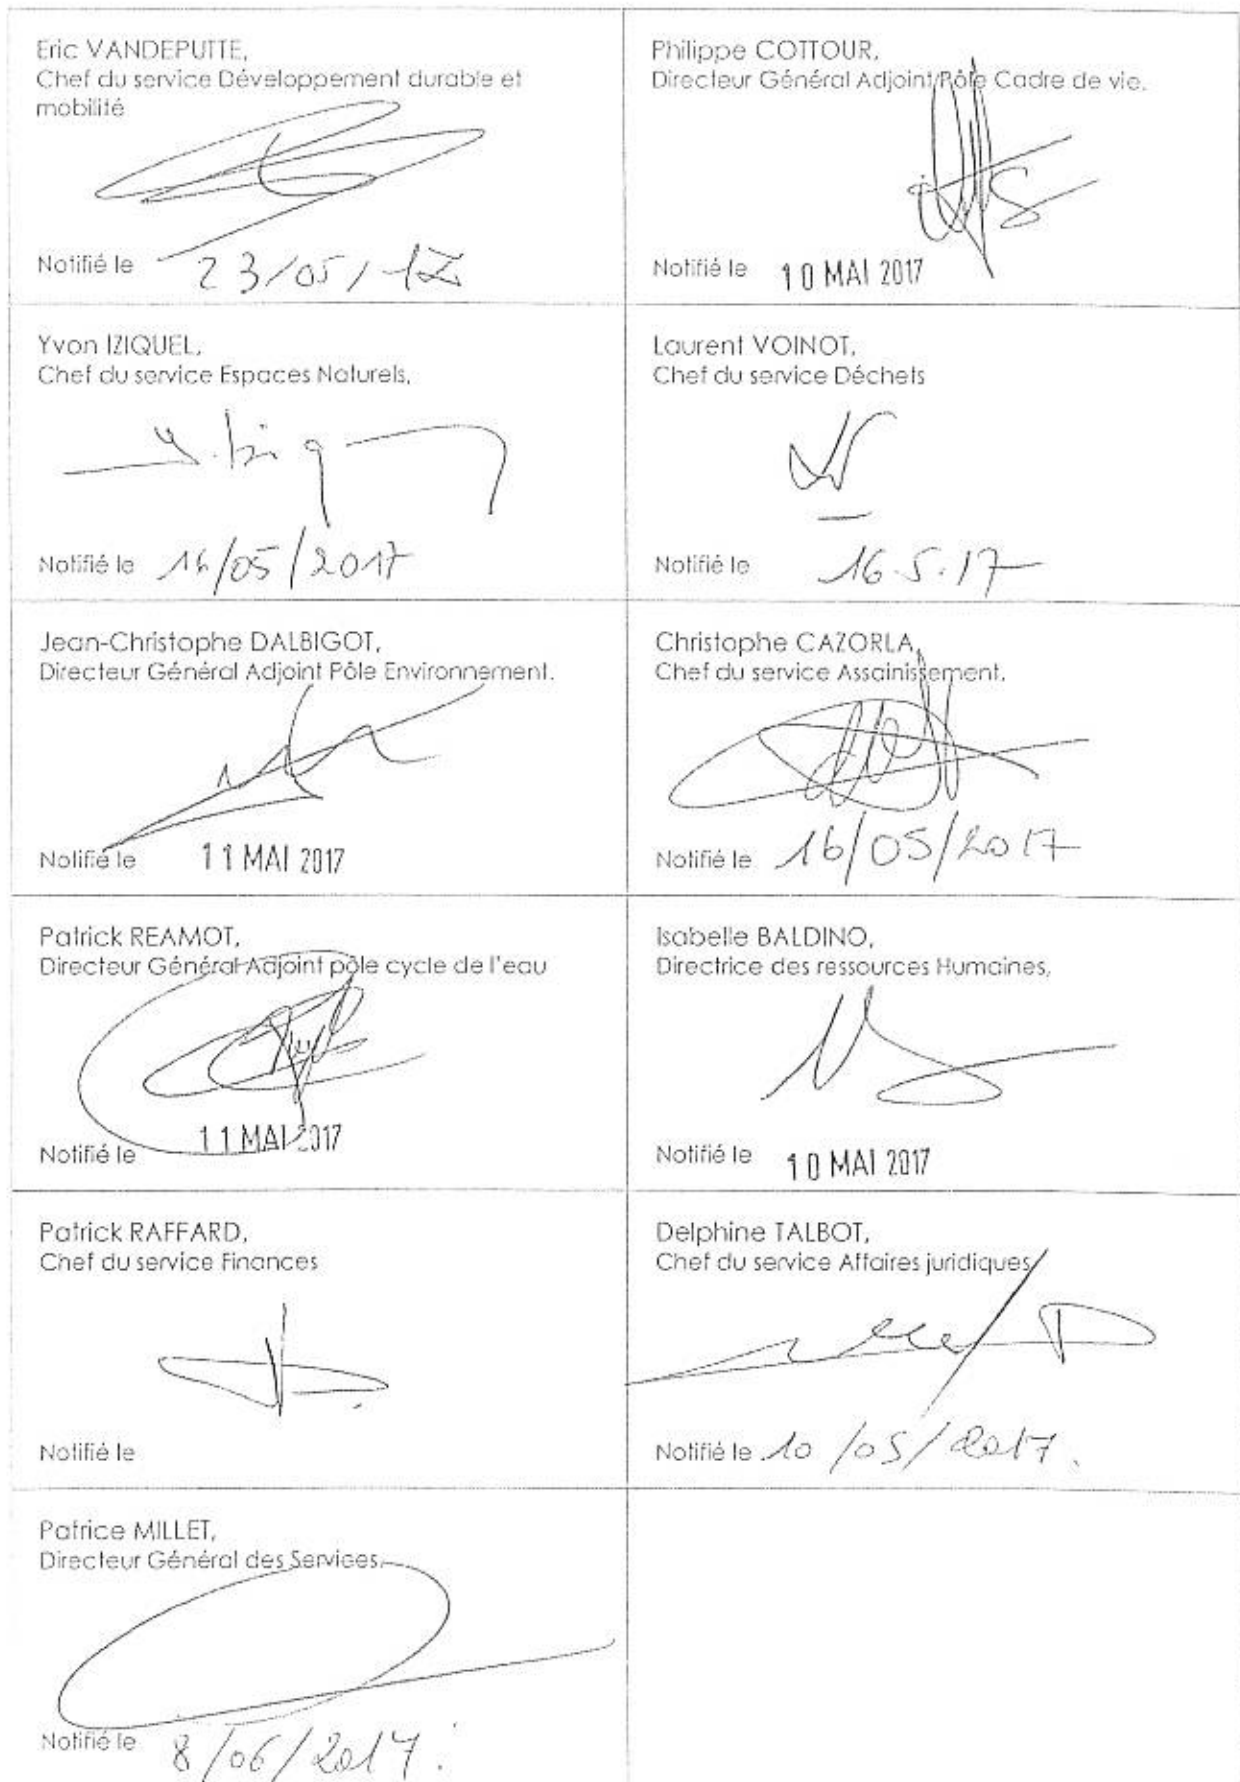 Eric VANDEPUTTE,
Chef du service Développement durable et
mobilité
Notifié le 23/05/17
Philippe COTTOUR,
Directeur Général Adjoint Pôle Cadre de vie,
Notifié le 10 MAI 2017
Yvon IZIQUEL,
Chef du service Espaces Naturels,
Notifié le 16/05/2017
Laurent VOINOT,
Chef du service Déchets
Notifié le 16.5.17
Jean-Christophe DALBIGOT,
Directeur Général Adjoint Pôle Environnement.
Notifié le 11 MAI 2017
Christophe CAZORLA,
Chef du service Assainissement,
Notifié le 16/05/2017
Patrick REAMOT,
Directeur Général Adjoint pôle cycle de l'eau
Notifié le 11 MAI 2017
Isabelle BALDINO,
Directrice des ressources Humaines,
Notifié le 10 MAI 2017
Patrick RAFFARD,
Chef du service Finances
Notifié le
Delphine TALBOT,
Chef du service Affaires juridiques
Notifié le 10/05/2017.
Patrice MILLET,
Directeur Général des Services,
Notifié le 8/06/2017.